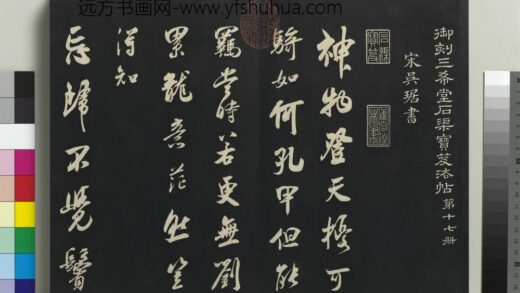 远方书画网-www.yfshuhua.com
御刻三希堂石渠寶笈法帖 第十七冊
宋吳琚書
神物登天擾可
騎如何孔甲但能
羈當時若更無劉
累龍意茫然豈
得知
忘歸不覺鬢